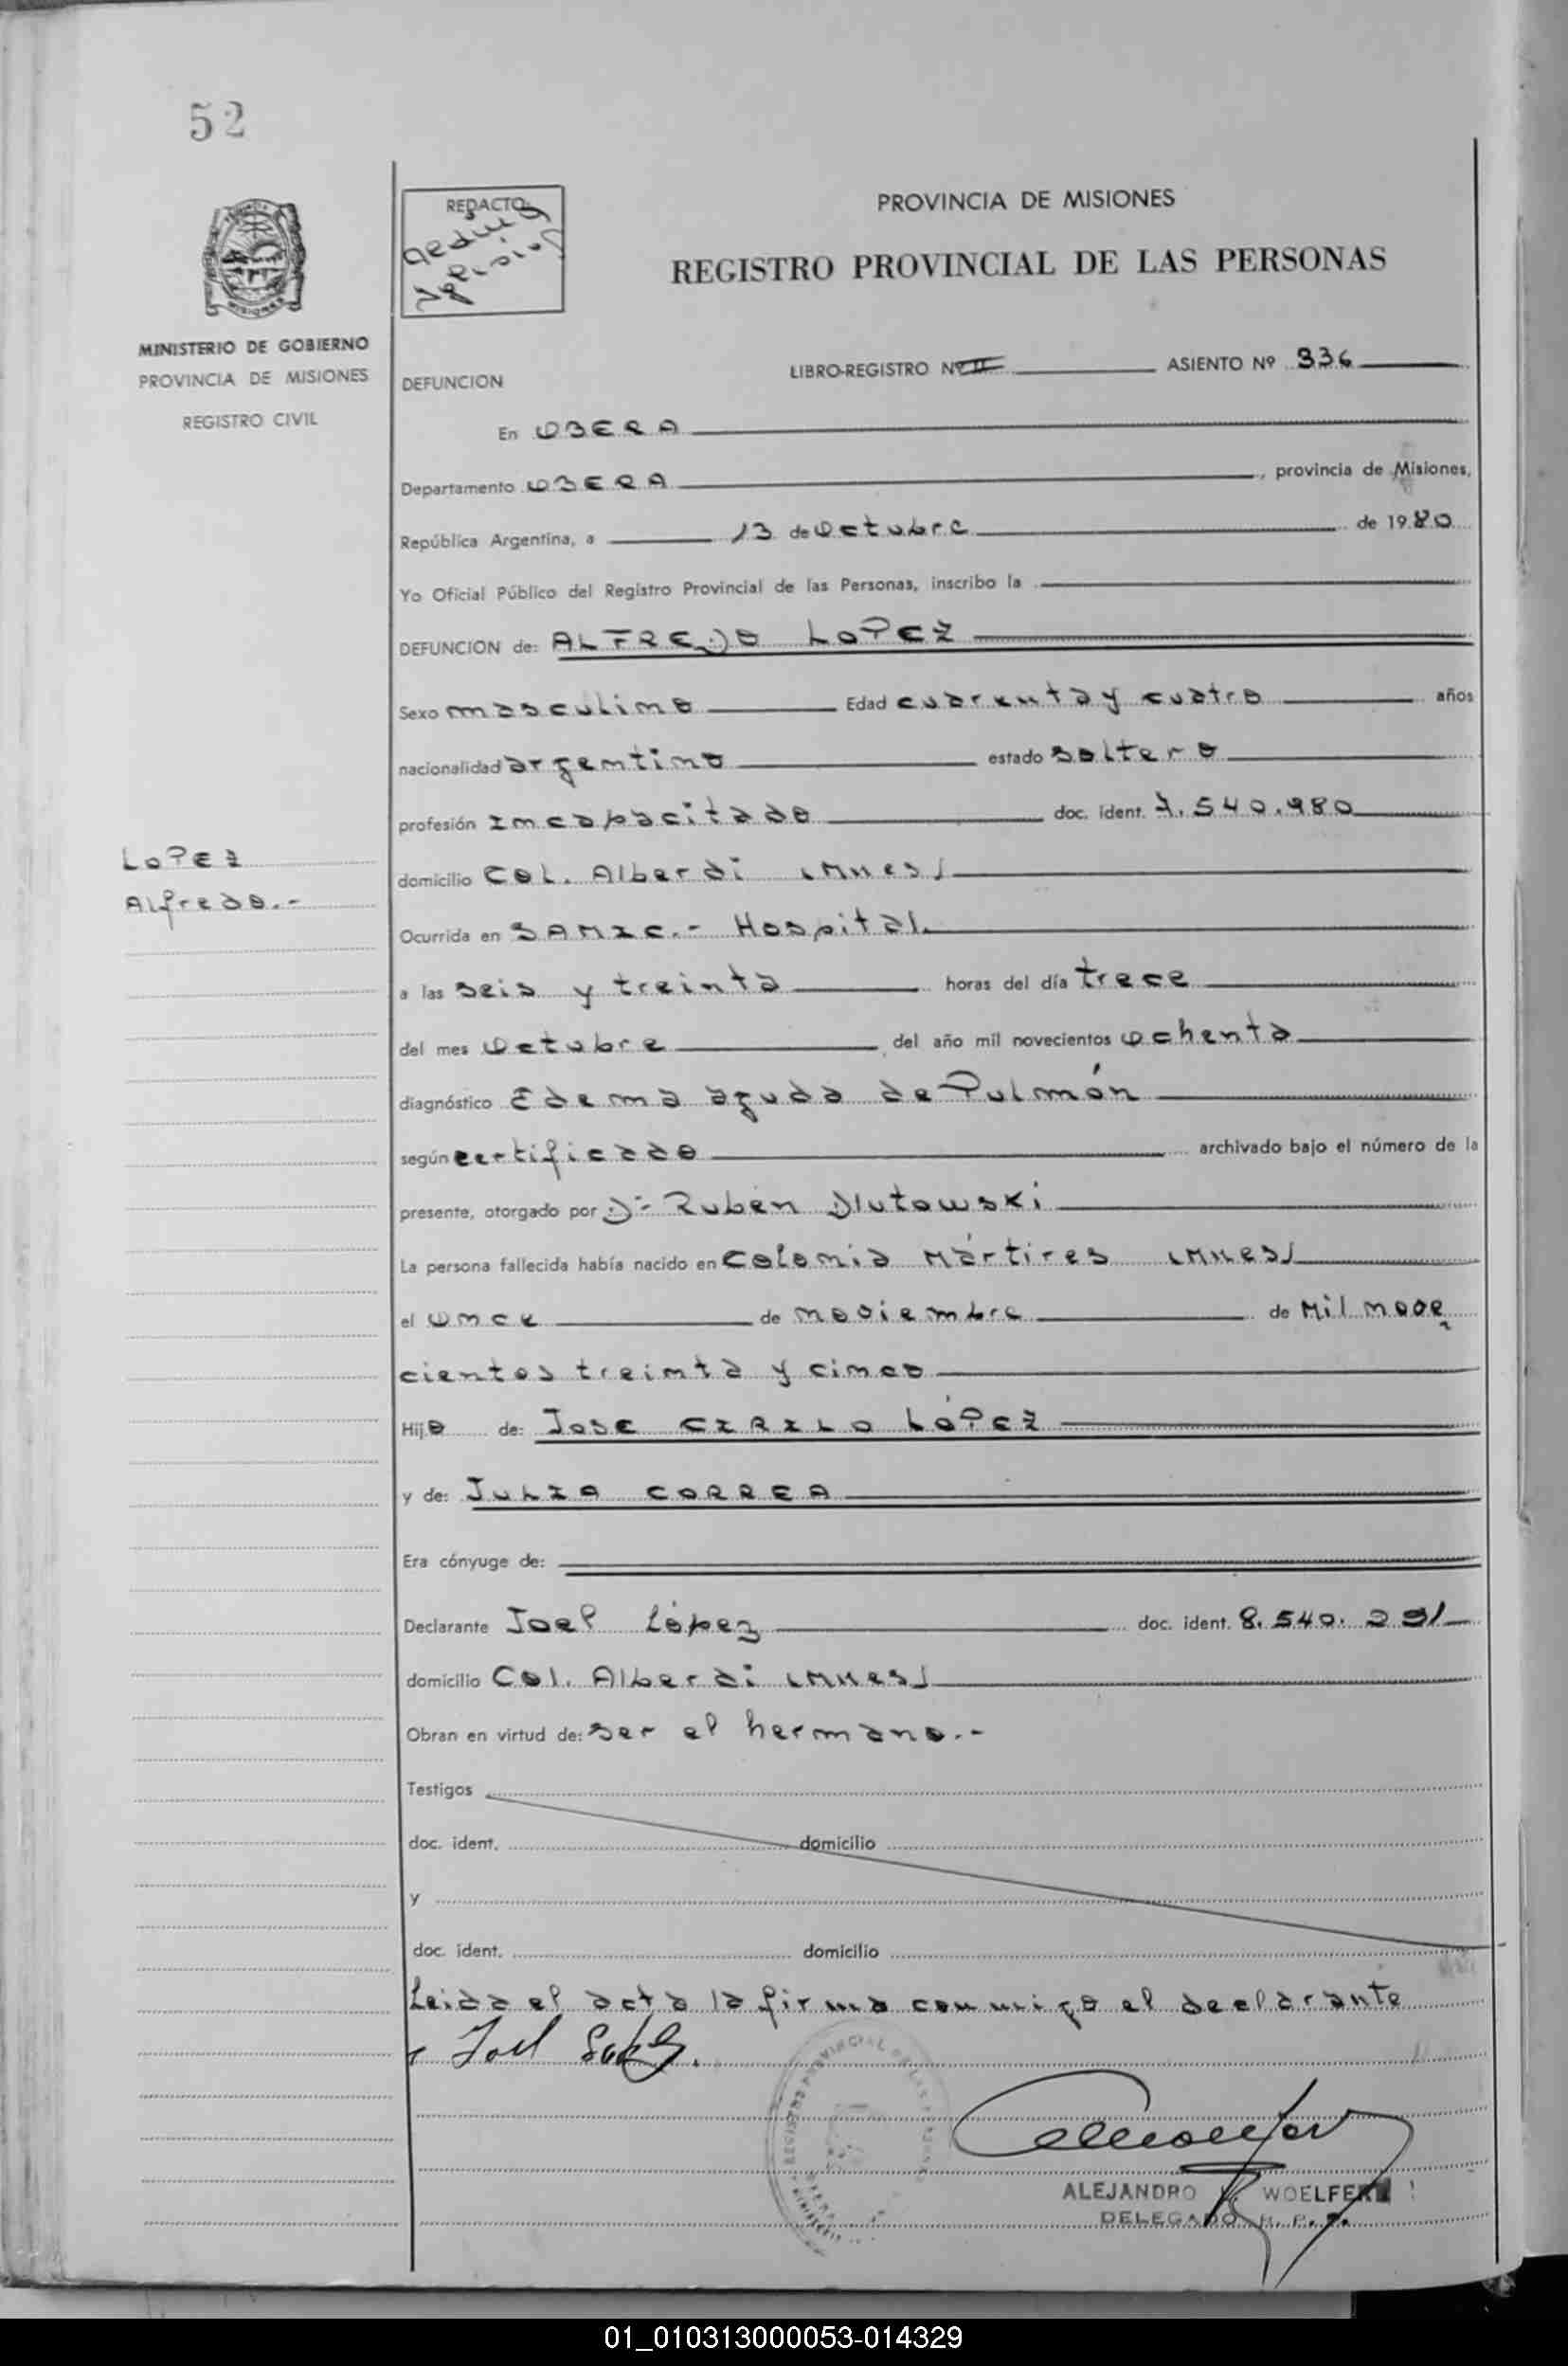 52
MINISTERIO DE GOBIERNO
PROVINCIA DE MISIONES
REGISTRO CIVIL
REDACTO
PROVINCIA DE MISIONES
REGISTRO PROVINCIAL DE LAS PERSONAS
DEFUNCION LIBRO-REGISTRO Nº II ASIENTO Nº 336
En OBERA
Departamento OBERA, provincia de Misiones,
República Argentina, a 13 de Octubre de 1980
Yo Oficial Público del Registro Provincial de las Personas, inscribo la
DEFUNCION de: ALFREDO LOPEZ
Sexo masculino Edad cuarenta y cuatro años
nacionalidad argentino estado soltero
profesión Incapacitado doc. ident. 7.540.980
LOPEZ
Alfredo.-
domicilio COL. Alberdi (Mnes)
Ocurrida en SAMIC.- Hospital.
a las seis y treinta horas del día trece
del mes Octubre del año mil novecientos ochenta
diagnóstico Edema aguda de Pulmón
según certificado archivado bajo el número de la
presente, otorgado por Dr Rubén Dlutowski
La persona fallecida había nacido en Colonia Mártires (Mnes)
el once de noviembre de Mil nove
cientos treinta y cinco
Hijo de: JOSE CIRILO LÓPEZ
y de: JULIA CORREA
Era cónyuge de:
Declarante Joel López doc. ident. 8.540.291
domicilio Col. Alberdi (Mnes)
Obran en virtud de: ser el hermano.-
Testigos
doc. ident. domicilio
y
doc. ident. domicilio
Leida el acta la firma conmigo el declarante
REGISTRO PROVINCIAL DE LAS PERSONAS
ALEJANDRO WOELFERT
DELEGADO R. P. P.
01_010313000053-014329